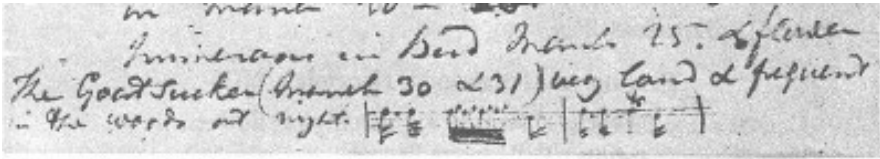 in March
Numerous in Bud March 25. & often
The Goat Sucker (March 30 & 31) very loud & frequent
in the woods at night.